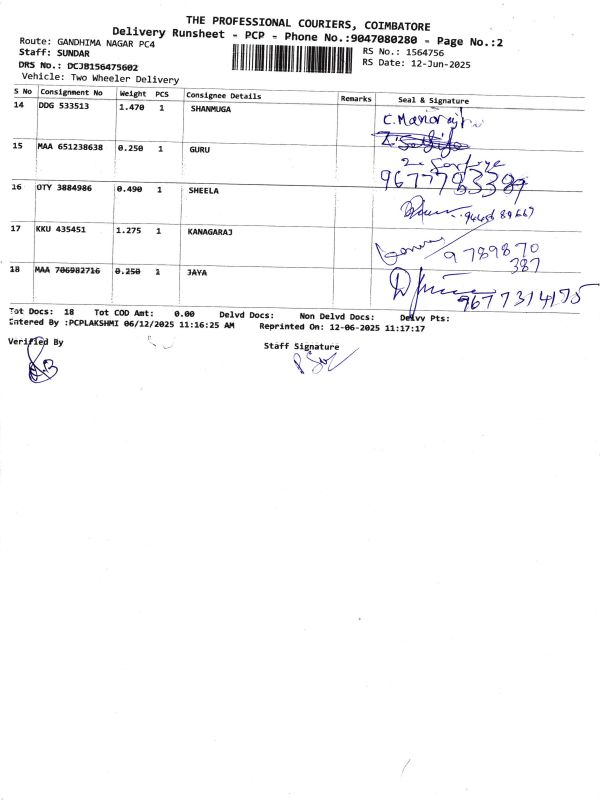 THE PROFESSIONAL COURIERS, COIMBATORE
Delivery Runsheet - PCP - Phone No.:9047080280 - Page No.:2
Route: GANDHIMA NAGAR PC4 RS No.: 1564756
Staff: SUNDAR RS Date: 12-Jun-2025
DRS No.: DCJB156475602
Vehicle: Two Wheeler Delivery
S No Consignment No Weight PCS Consignee Details Remarks Seal & Signature
14 DDG 533513 1.470 1 SHANMUGA
C. Manoraj
15 MAA 651238638 0.250 1 GURU
9677783389
16 OTY 3884986 0.490 1 SHEELA
17 KKU 435451 1.275 1 KANAGARAJ
9789870
387
18 MAA 706982716 0.250 1 JAYA
9677314175
Tot Docs: 18 Tot COD Amt: 0.00 Delvd Docs: Non Delvd Docs: Delvy Pts:
Entered By :PCPLAKSHMI 06/12/2025 11:16:25 AM Reprinted On: 12-06-2025 11:17:17
Verified By Staff Signature